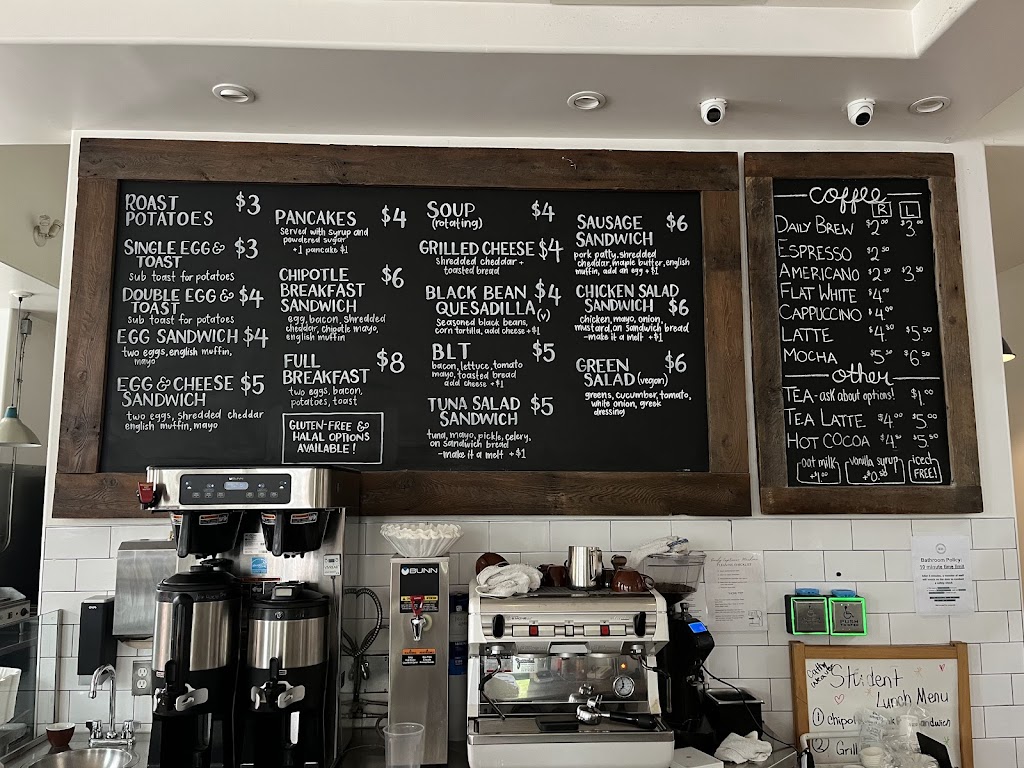 ROAST $3
POTATOES
SINGLE EGG & $3
TOAST
sub toast for potatoes
DOUBLE EGG & $4
TOAST
sub toast for potatoes
EGG SANDWICH $4
two eggs, english muffin,
mayo
EGG & CHEESE $5
SANDWICH
two eggs, shredded cheddar
english muffin, mayo
PANCAKES $4
served with syrup and
powdered sugar
+1 pancake $1
CHIPOTLE $6
BREAKFAST
SANDWICH
egg, bacon, shredded
cheddar, chipotle mayo,
english muffin
FULL $8
BREAKFAST
two eggs, bacon,
potatoes, toast
GLUTEN-FREE &
HALAL OPTIONS
AVAILABLE!
SOUP $4
(rotating)
GRILLED CHEESE $4
shredded cheddar +
toasted bread
BLACK BEAN $4
QUESADILLA (v)
seasoned black beans,
corn tortilla, add cheese +$1
BLT $5
bacon, lettuce, tomato
mayo, toasted bread
add cheese +$1
TUNA SALAD $5
SANDWICH
tuna, mayo, pickle, celery,
on sandwich bread
-make it a melt +$1
SAUSAGE $6
SANDWICH
pork patty, shredded
cheddar, maple butter, english
muffin, add an egg +$1
CHICKEN SALAD
SANDWICH $6
chicken, mayo, onion,
mustard, on sandwich bread
-make it a melt +$1
GREEN $6
SALAD (vegan)
greens, cucumber, tomato,
white onion, greek
dressing
coffee
R L
DAILY BREW $2.00 $3.00
ESPRESSO $2.50
AMERICANO $2.50 $3.50
FLAT WHITE $4.00
CAPPUCCINO $4.00
LATTE $4.50 $5.50
MOCHA $5.50 $6.50
other
TEA - ask about options! $1.00
TEA LATTE $4.00 $5.00
HOT COCOA $4.50 $5.50
oat milk +$1.00
vanilla syrup +$0.50
iced FREE!
BUNN
BUNN
Bathroom Policy:
10 minute time limit
PUSH
Student
Lunch Menu
① chipotle
sandwich
② Grill